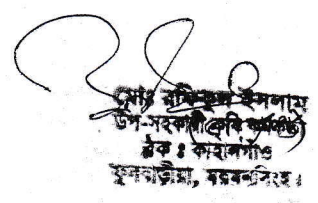 মোঃ রফিকুল ইসলাম
উপ-সহকারী কৃষি কর্মকর্তা
ব্লক : কাহালগাঁও
ফুলবাড়ীয়া, ময়মনসিংহ।